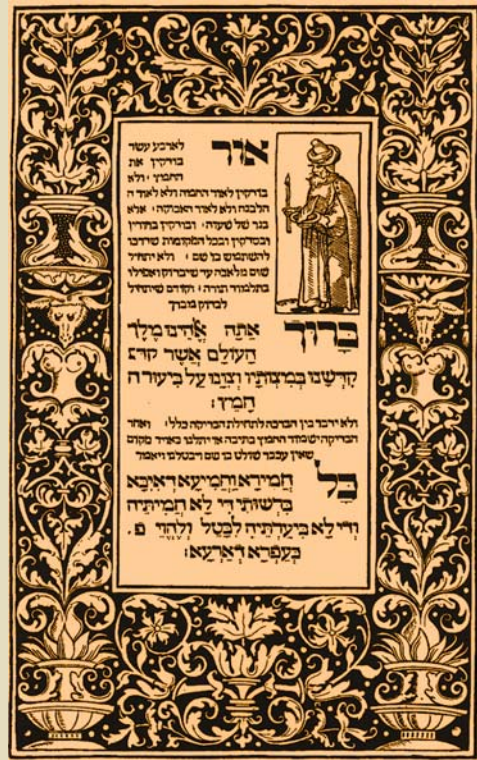 אור לארבע עשר
בודקין את
החמץ׳ ולא
בודקין לאור החמה ולא לאור ה
הלבנה ולא לאור האבוקה׳ אלא
בנר של שעוה׳ ובודקין בחורין
ובסדקין ובכל המקומות שדרכו
להשתמש בו שם׳ ולא יתחיל
שום מלאכה עד שיבדוק ואפילו
בתלמוד תורה׳ וקודם שיתחיל
לבדוק מברך
בָּרוּךְ אַתָּה אֱלֹהֵינוּ מֶלֶךְ
הָעוֹלָם אֲשֶׁר קד
קִדְּשָׁנוּ בְּמִצְוֹתָיו וְצִוָּנוּ עַל בִּיעוּר ה
חָמֵץ׃
ולא ידבר בין הברכה לתחילת הבדיקה כלל׳ ואחר
הבדיקה ישמור החמץ בתיבה או יתלנו באויר מקום
שאין עכבר שולט בו שם ויבטלנו ויאמר
כָּל חֲמִירָא וַחֲמִיעָא דְאִיכָּא
בִּרְשׁוּתִי דִי לָא חֲמִיתֵּיהּ
וְדִי לָא בִיעַרְתֵּיהּ לִבָּטֵל וְלֶהֱוֵי פ.
בְּעַפְרָא דְאַרְעָא׃